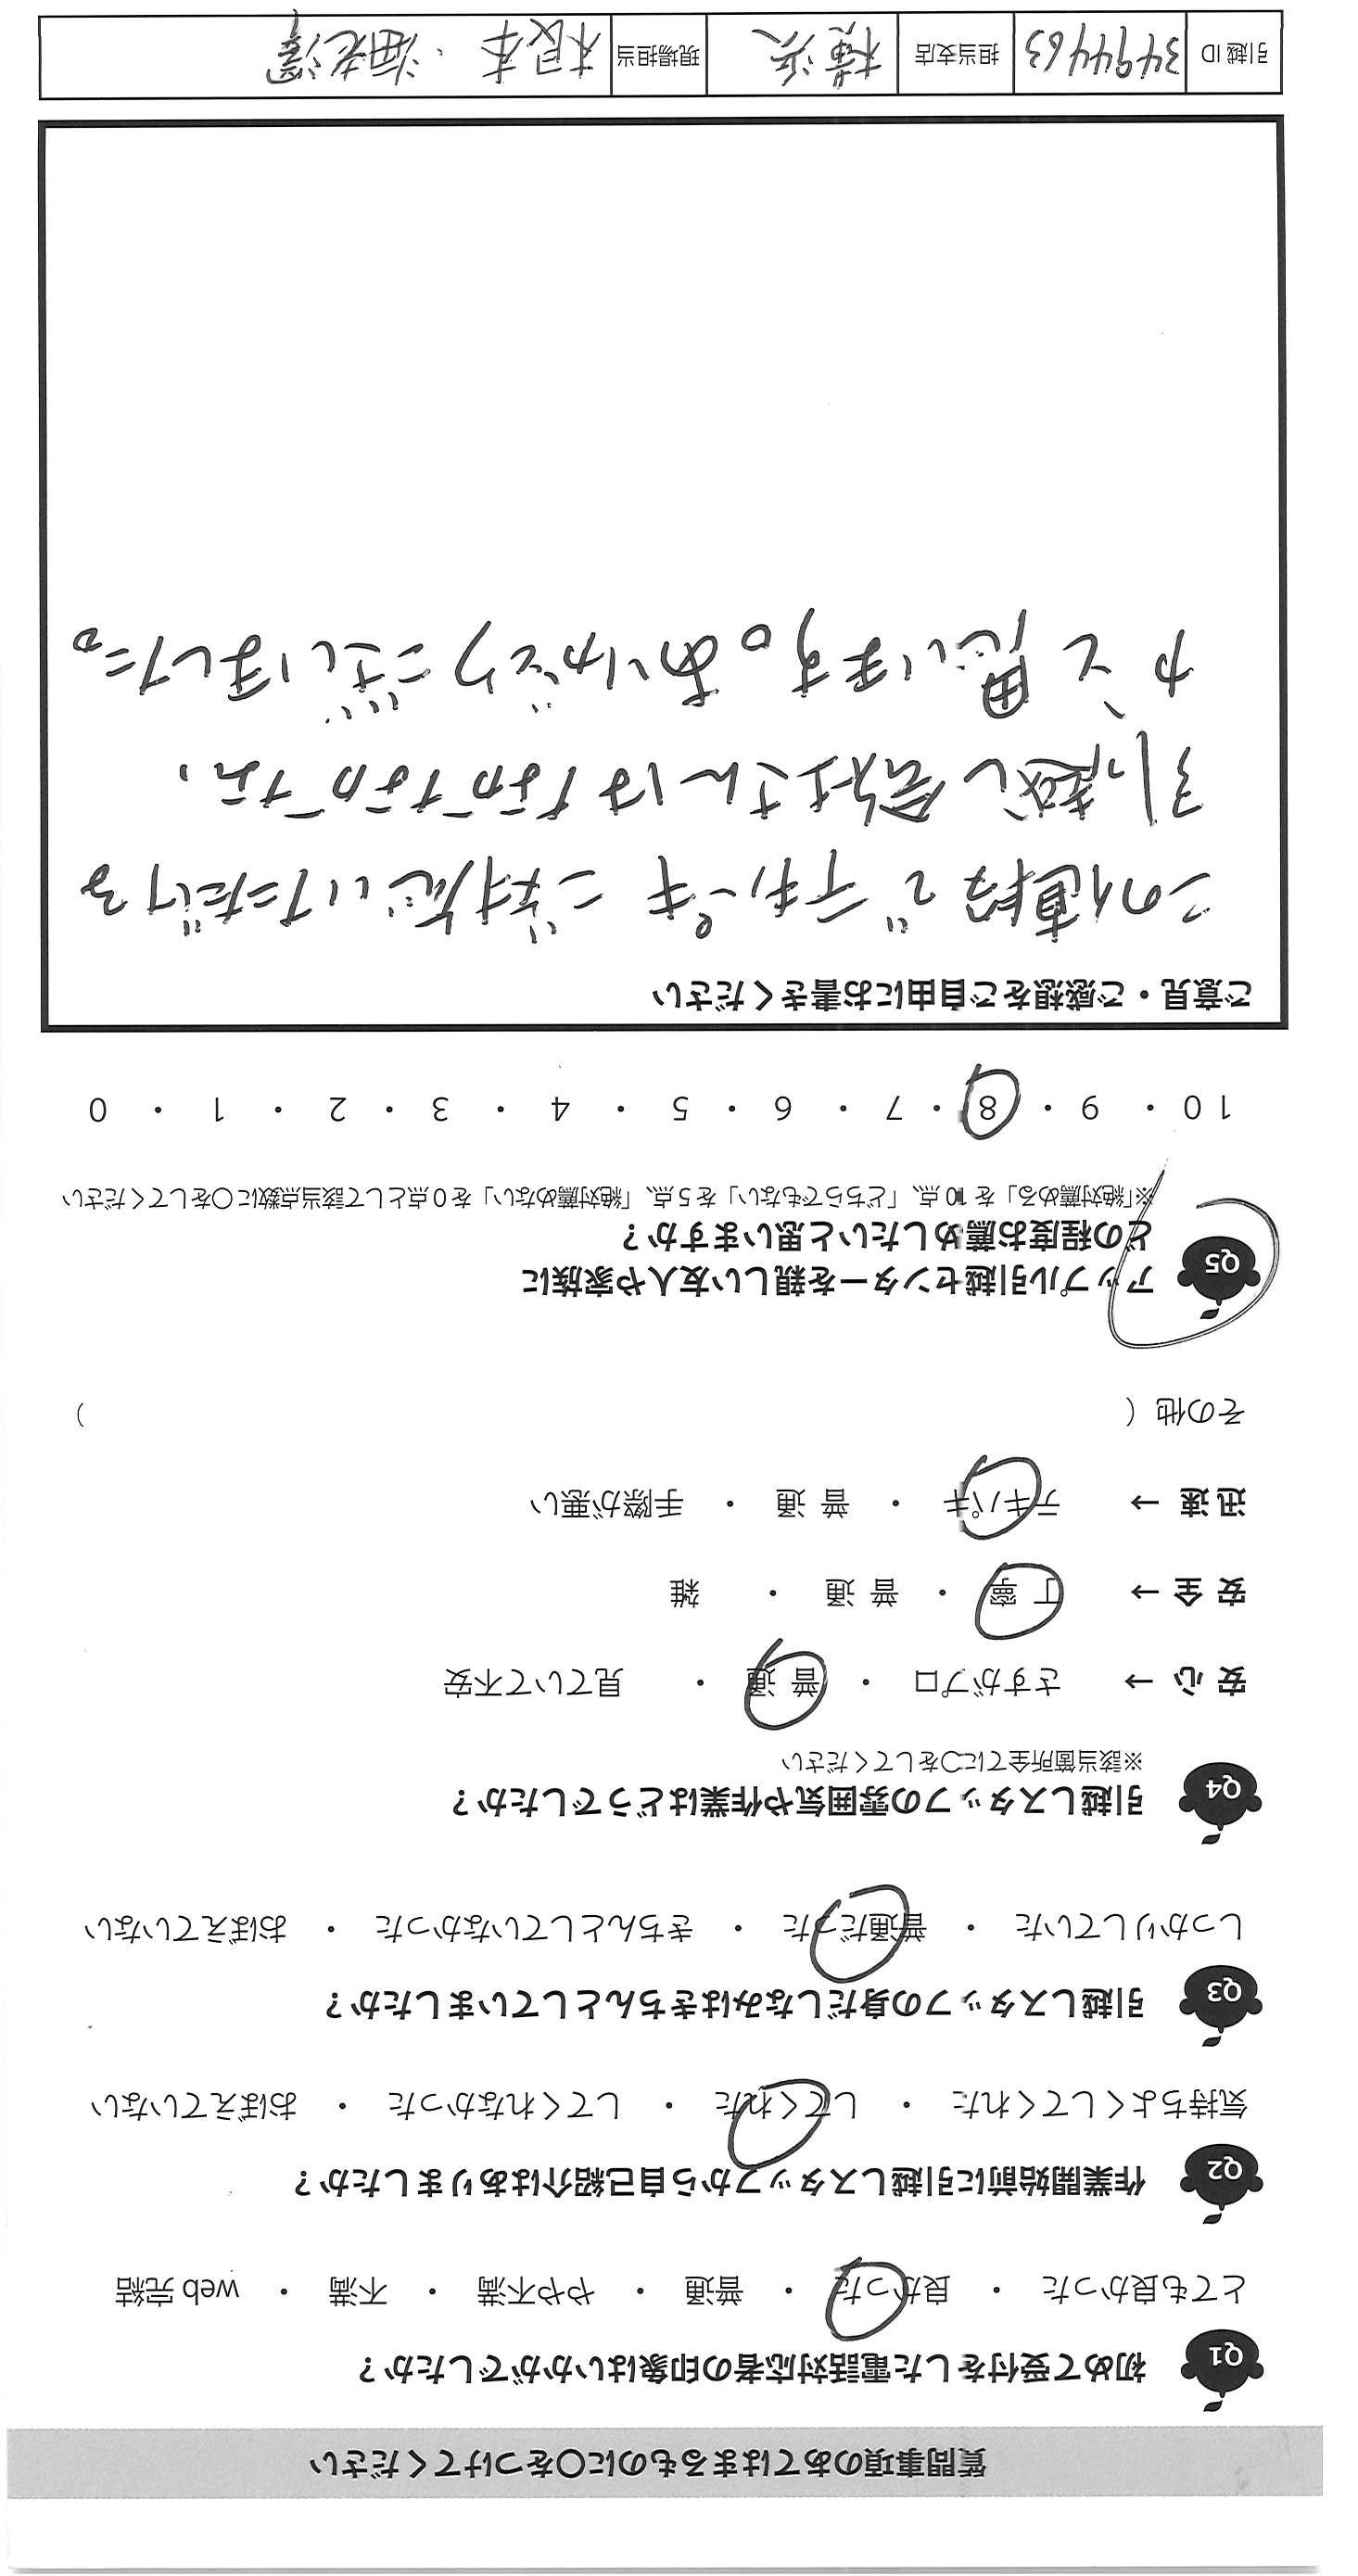 質問事項のあてはまるものに○をつけてください
Q1 初めて受付をした電話対応者の印象はいかがでしたか？
とても良かった ・ 良かった ・ 普通 ・ やや不満 ・ 不満 ・ web 完結
Q2 作業開始前に引越しスタッフから自己紹介はありましたか？
気持ちよくしてくれた ・ してくれた ・ してくれなかった ・ おぼえていない
Q3 引越しスタッフの身だしなみはきちんとしていましたか？
しっかりしていた ・ 普通だった ・ きちんとしていなかった ・ おぼえていない
Q4 引越しスタッフの雰囲気や作業はどうでしたか？
※該当箇所全てに○をしてください
安 心 → さすがプロ ・ 普 通 ・ 見ていて不安
安 全 → 丁 寧 ・ 普 通 ・ 雑
迅 速 → テキパキ ・ 普 通 ・ 手際が悪い
その他（ ）
Q5 アップル引越センターを親しい友人や家族に
どの程度お薦めしたいと思いますか？
※「絶対薦める」を 10点、「どちらでもない」を５点、「絶対薦めない」を０点として該当点数に○をしてください
10 ・ 9 ・ 8 ・ 7 ・ 6 ・ 5 ・ 4 ・ 3 ・ 2 ・ 1 ・ 0
ご意見・ご感想をご自由にお書きください
この値段で テキパキ ご対応いただける
引っ越し会社さんは なかなかない、
かと思います。ありがとうございました。
引越 ID 34944463 担当支店 横浜 現場担当 根本・海老澤